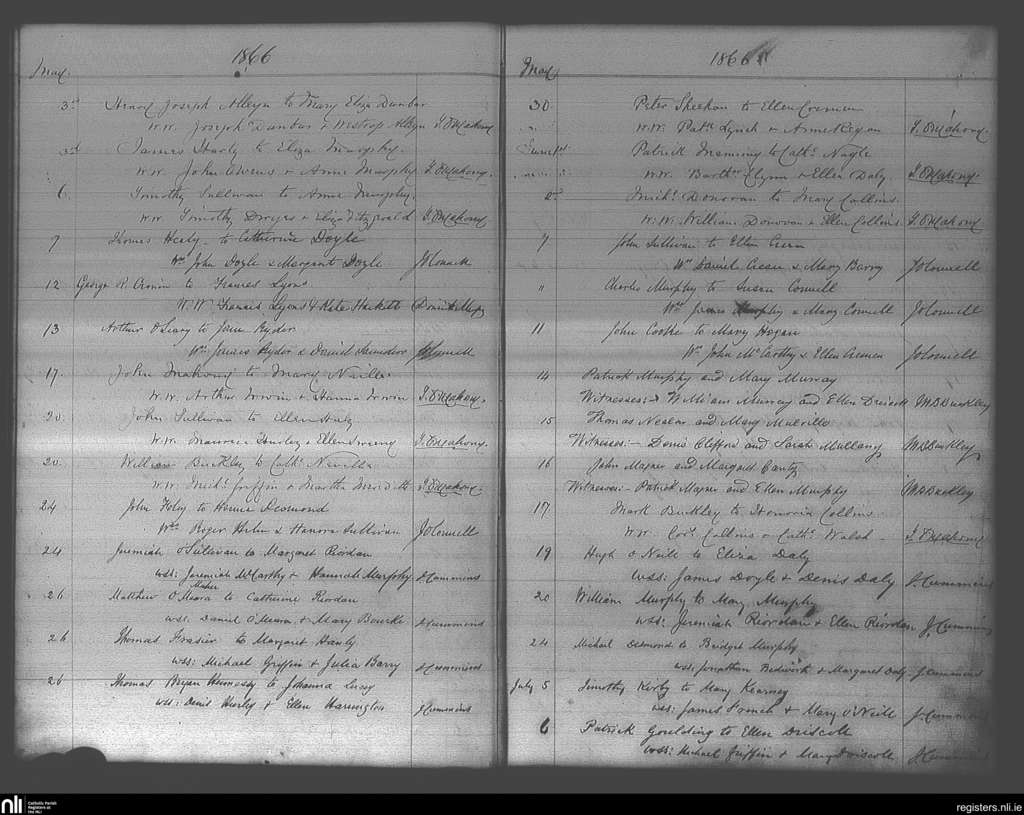 1866
May
3rd Henry Joseph Alleyn to Mary Eliza Dunbar
W.W. Joseph Dunbar & Westrop Alleyn J. O'Mahony
3rd James Hurly to Eliza Murphy.
W.W. John Owens & Anne Murphy J. O'Mahony.
6 Timothy Sullivan to Anne Murphy.
W.W. Timothy Dwyer & Eliza Fitzgerald J. O'Mahony
7 Thomas Healy to Catherine Doyle
Ws John Doyle & Margaret Doyle
12 George R. Cronin to Frances Lyons
W.W. Francis Lyons & Kate Hackett
13 Arthur O'Leary to Jane Ryder
Ws James Ryder & Daniel
17. John Mahony to Mary
W.W. Arthur Irwin & Hanna Irwin J. O'Mahony.
20. John Sullivan to Ellen
W.W. Maurice Hurley & Ellen J. O'Mahony.
20. William Buckley to Cathe Neville
W.W. Michl Griffin & Martha J. O'Mahony.
24 John Foley to Honor Desmond
Wss Roger & Hanora Sullivan J O'Connell
24 Jeremiah O'Sullivan to Margaret Riordan
wss: Jeremiah McCarthy & Hannah Murphy J Cummins
26 Matthew O'Meara to Catherine Riordan
wss. Daniel O'Meara & Mary Bourke J Cummins
26 Thomas Frasier to Margaret Hanly
wss: Michael Griffin & Julia Barry J Cummins
26 Thomas Bryan Hennessy to Johanna Lucy
wss: Denis Hurley & Ellen Harrington J Cummins
1866
May
30 Peter Sheehan to Ellen Cremen
W.W. Patk Lynch & Anne Regan J. O'Mahony.
June 1st Patrick Manning to Cathe Nagle
W.W. Barthw Flynn & Ellen Daly J. O'Mahony.
2nd Michl Donovan to Mary Collins.
W.W. William Donovan & Ellen Collins J. O'Mahony
7 John Sullivan to Ellen Crean
Ws Daniel Crean & Mary Barry J O'Connell
" Charles Murphy to Susan Connell
Ws James Murphy & Mary Connell J O'Connell
11 John Cooke to Mary Hogan
Ws John McCarthy & Ellen Cremen J O'Connell
14 Patrick Murphy and Mary Murray
Witnesses:- William Murray and Ellen Driscoll M B Buckley
15 Thomas and Mary Melville
Witnesses:- Denis Clifford and Sarah Mullany M B Buckley
16 John Magner and Margaret Canty
Witnesses:- Patrick Magner and Ellen Murphy M B Buckley
17. Mark Buckley to Honoria Collins.
W.W. Cors Collins & Cathe Walsh - J. O'Mahony
19 Hugh O'Neill to Eliza Daly
wss: James Doyle & Denis Daly J. Cummins
20 William Murphy to Mary Murphy
wss. Jeremiah Riordan & Ellen Riordan J. Cummins
24 Michael Desmond to Bridget Murphy
wss. Jonathan & Margaret Daly J. Cummins
July 5 Timothy Kirby to Mary Kearney
wss: James & Mary O'Neill J. Cummins
6 Patrick Goulding to Ellen Driscoll
wss: Michael Griffin & Mary Driscoll J. Cummins
nli Catholic Parish Registers at the NLI
registers.nli.ie